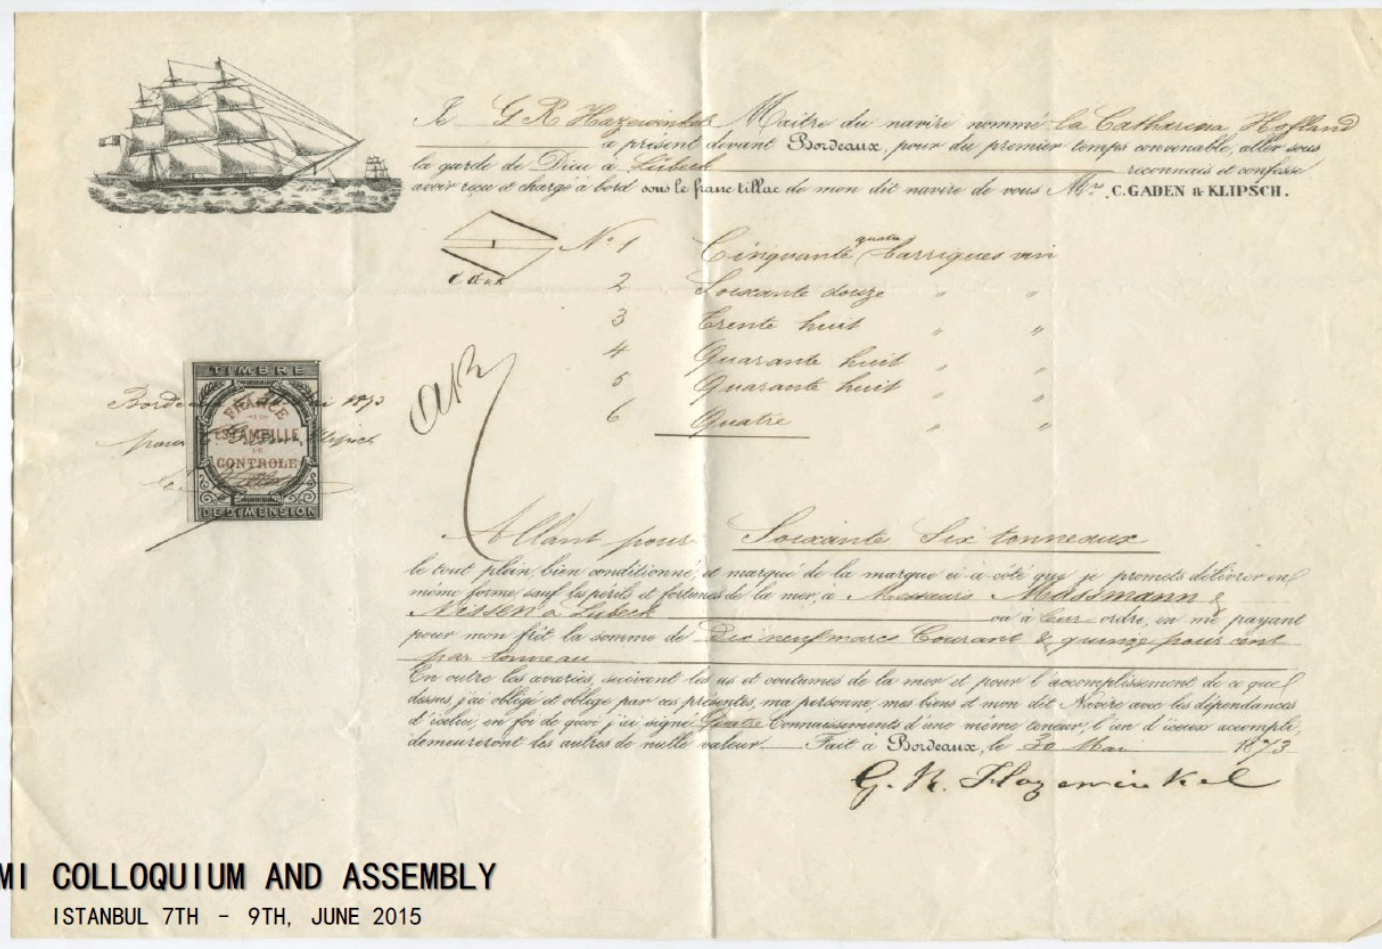 Je G R Hazewinkel Maître du navire nommé la Catharina Hofland
à présent devant Bordeaux, pour du premier temps convenable, aller sous
la garde de Dieu à Lübeck reconnais et confesse
avoir reçu et chargé à bord sous le franc tillac de mon dit navire de vous Mrs C. GADEN & KLIPSCH.
No 1 Cinquante quatre barriques vin
2 Soixante douze " "
3 Trente huit " "
4 Quarante huit " "
5 Quarante huit " "
6 Quatre " "
TIMBRE
Bordeaux Mai 1873
FRANCE
pour Klipsch
ESTAMPILLE
DE
CONTROLE
DE DIMENSION
Allant pour Soixante Six tonneaux
le tout plein, bien conditionné, et marqué de la marque ci à côté que je promets délivrer en
même forme, sauf les périls et fortunes de la mer, à Messieurs Massmann &
Nissen à Lubeck ou à leur ordre, en me payant
pour mon frêt la somme de Dix neuf marcs Courant & quinze pour cent
par tonneau
En outre les avaries, suivant les us et coutumes de la mer et pour l'accomplissement de ce que
dessus, j'ai obligé et oblige par ces présentes, ma personne, mes biens et mon dit Navire avec les dépendances
d'icelui, en foi de quoi j'ai signé Quatre Connaissements d'une même teneur, l'un d'iceux accompli,
demeureront les autres de nulle valeur. Fait à Bordeaux, le 30 Mai 1873
G. R. Hazewinkel
MI COLLOQUIUM AND ASSEMBLY
ISTANBUL 7TH - 9TH, JUNE 2015